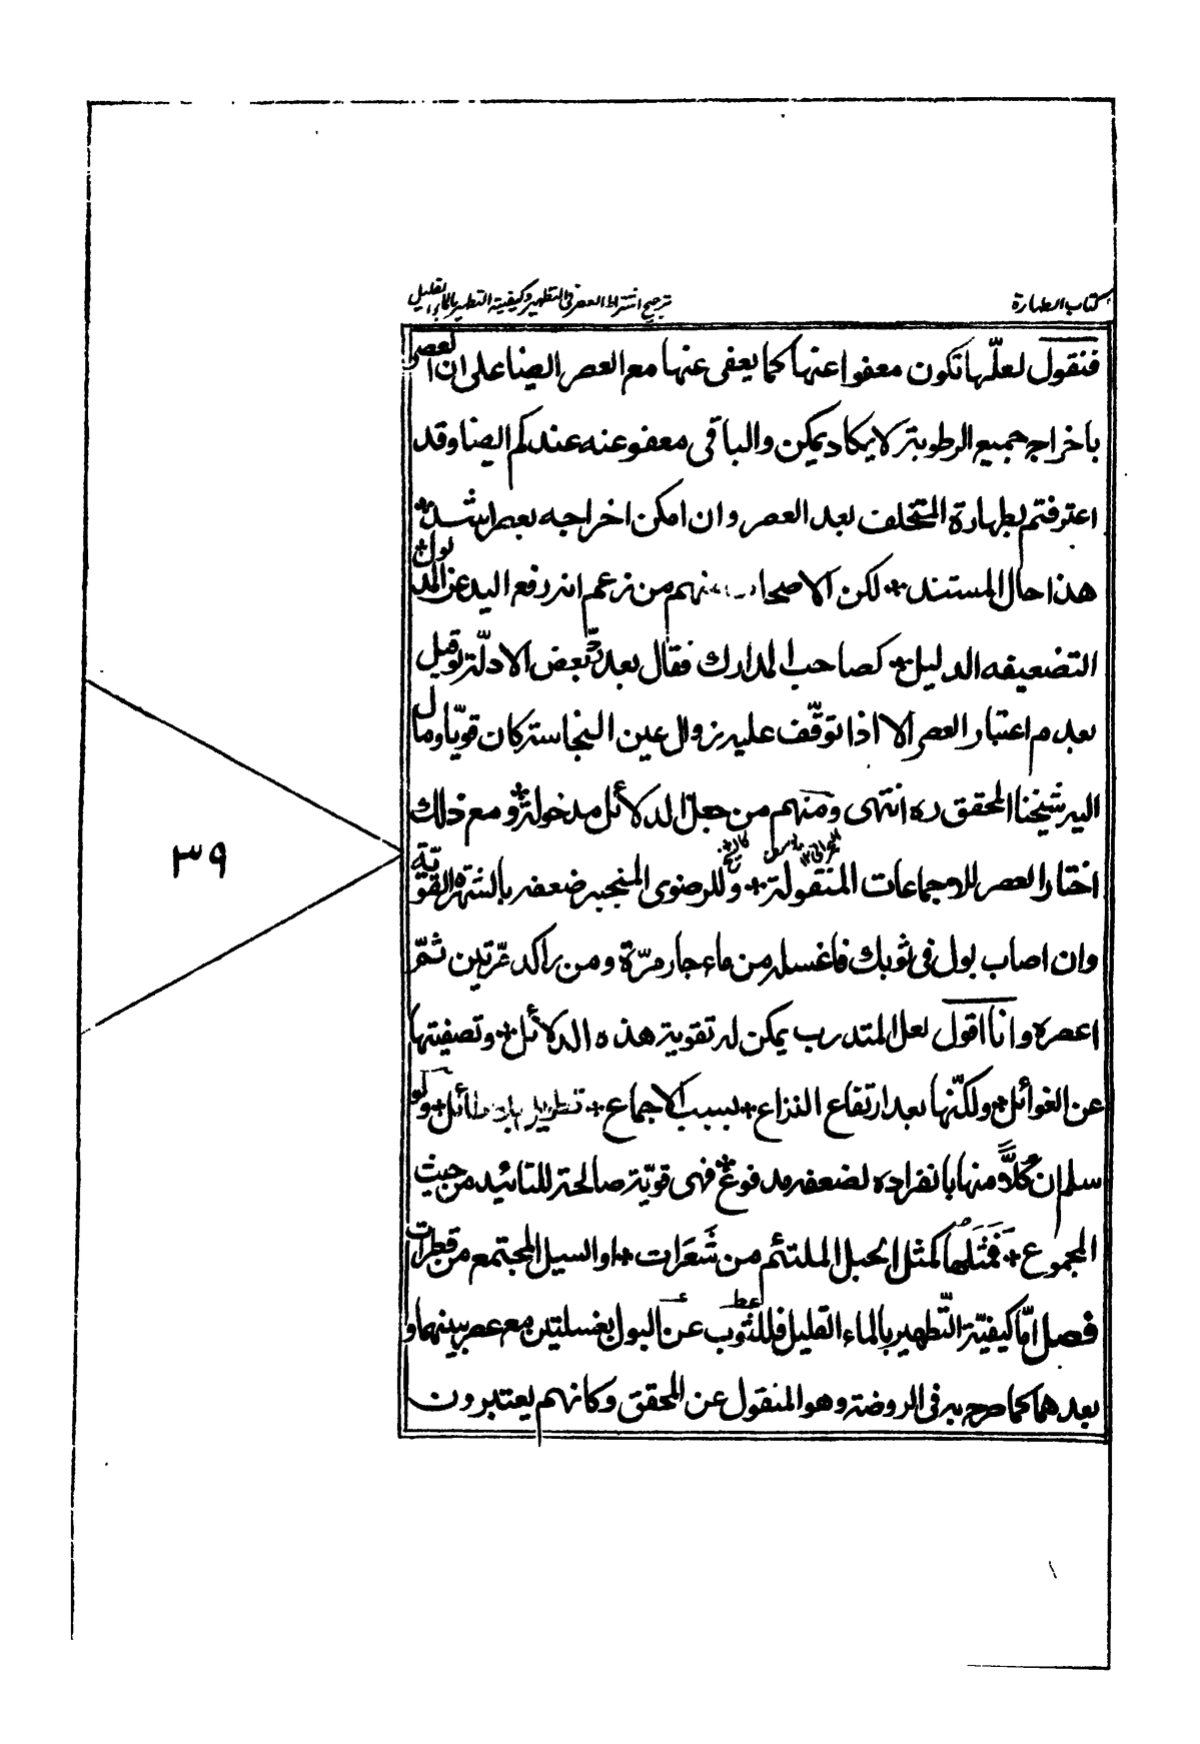 كتاب الطهارة
ترجيح اشتراط العصر فى التطهير وكيفية التطهير بالماء القليل
فنقول لعلّها تكون معفوا عنها كما يعفى عنها مع العصر ايضا على ان العصر
باخراج جميع الرطوبة لا يكاد يمكن والباقى معفو عنه عندكم ايضا وقد
اعترفتم بطهارة المتخلف بعد العصر وان امكن اخراجه بعصر اشد
هذا حال المستند لكن الاصحاب منهم من زعم انه رفع اليد عن المدلول
لتضعيفه الدليل كصاحب المدارك فقال بعد ردّ بعض الادلّة لو قيل
بعدم اعتبار العصر الا اذا توقّف عليه زوال عين النجاسة كان قويّا ومال
اليه شيخنا المحقق ره انتهى ومنهم من جعل الدلائل مدخولة ومع ذلك
اختار العصر للاجماعات المنقولة وللرضوى المنجبر ضعفه بالشهرة القويّة
وان اصاب بول فى ثوبك فاغسله من ماء جار مرّة ومن راكد مرّتين ثمّ
اعصره وانا اقول لعل المتدرب يمكن له تقوية هذه الدلائل وتصفيتها
عن الغوائل ولكنّها بعد ارتفاع النزاع بسبب الاجماع تطويل بلا طائل ولو
سلم ان كُلاًّ منها بانفراده لضعفه مدفوع فهى قويّة صالحة للتائيد من حيث
المجموع فَمَثَلُها كمثل الحبل الملتئم من شَعَرات او السيل المجتمع من قطرات
فصل امّا كيفيّة التّطهير بالماء القليل فللثوب عن البول بغسلتين مع عصر بينهما و
بعدهما كما صرح به فى الروضة وهو المنقول عن المحقق وكانهم يعتبرون
٣٩